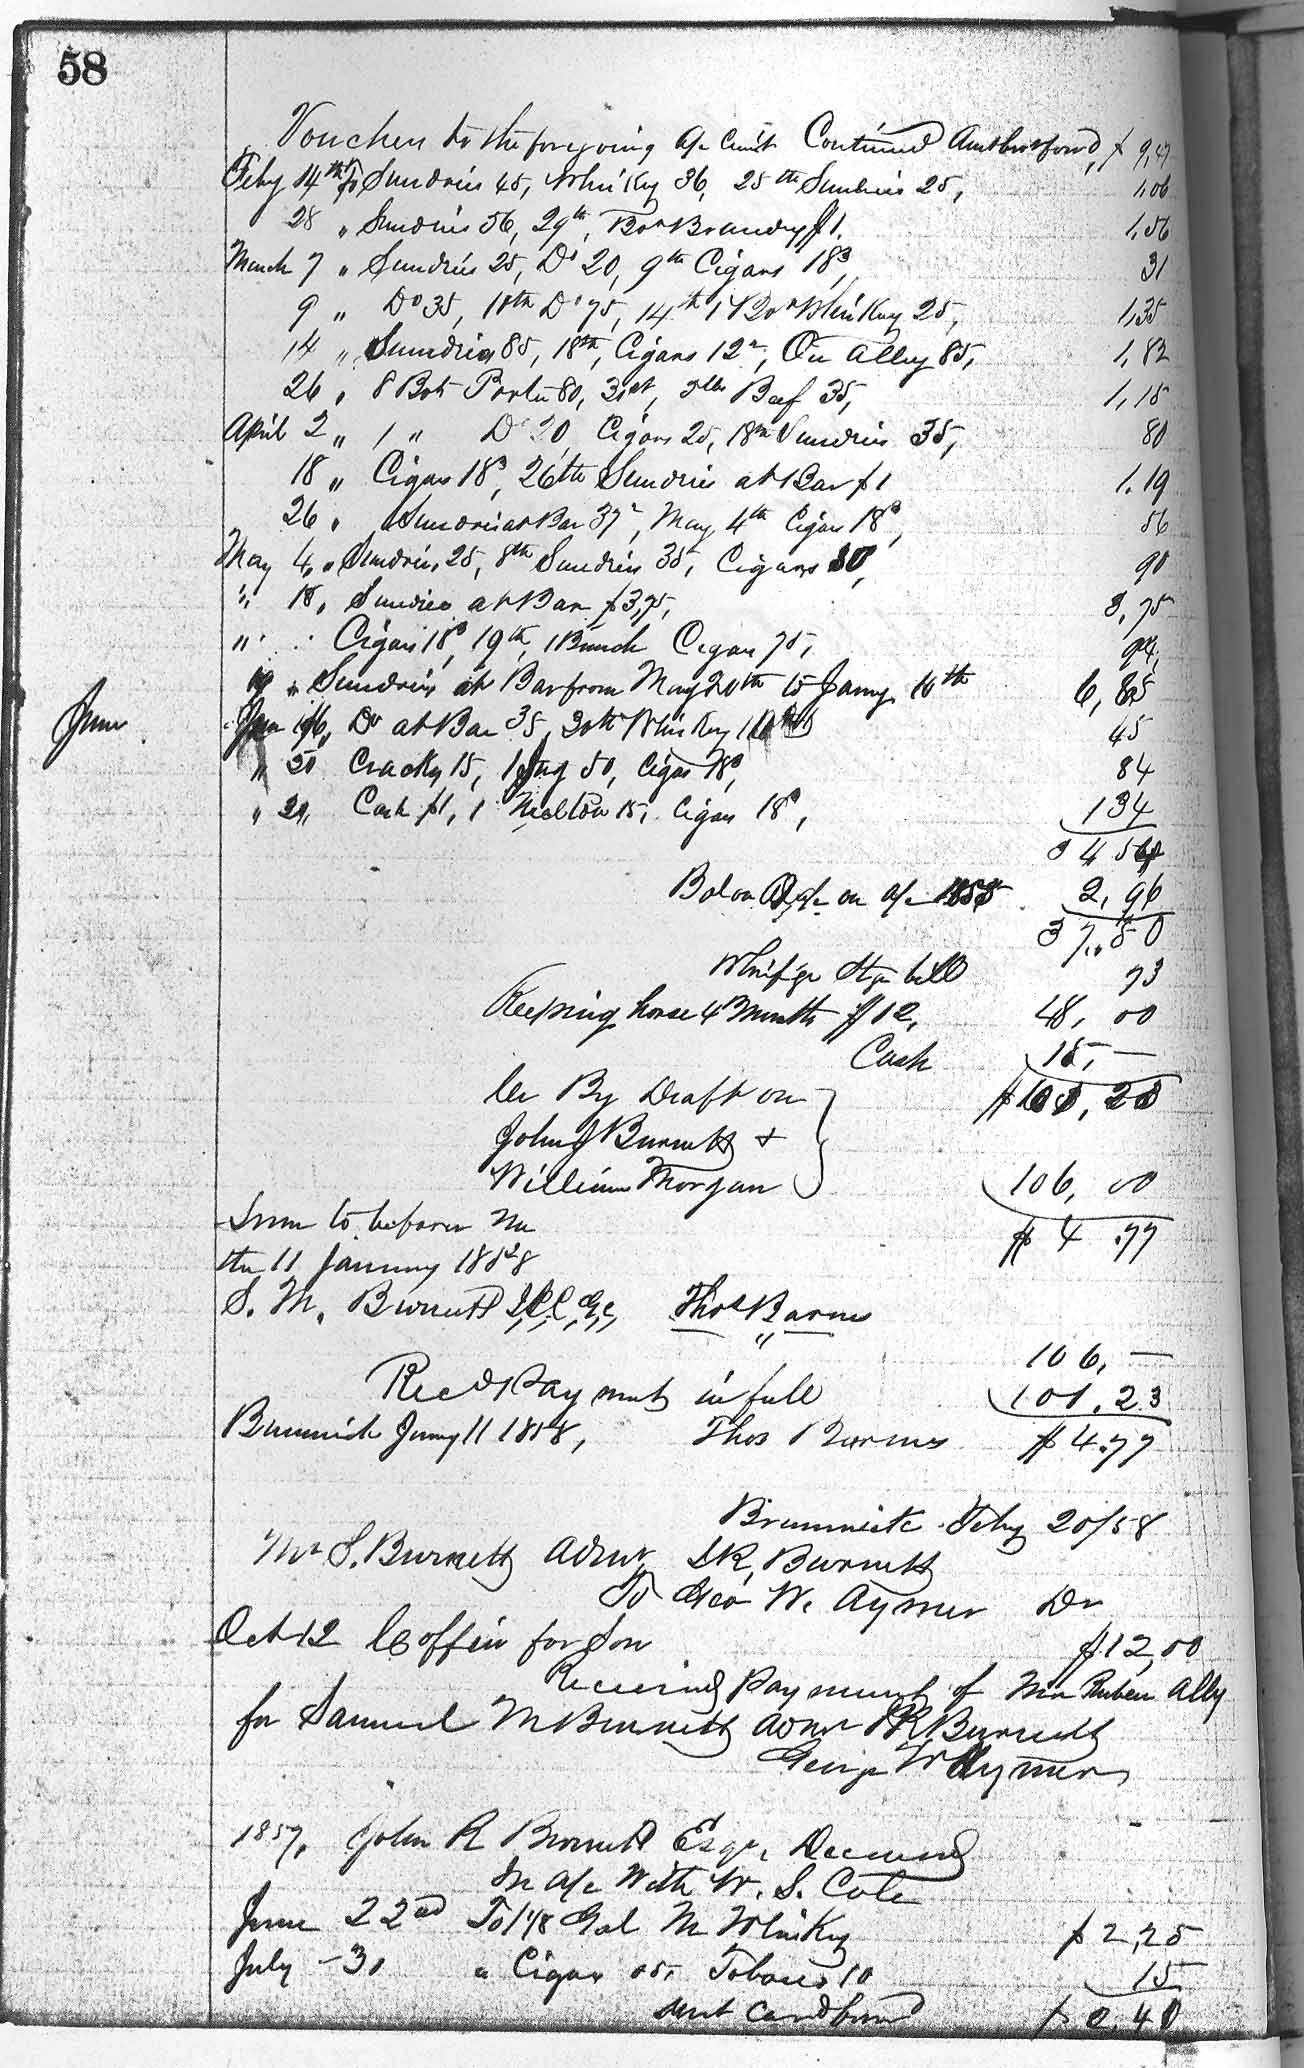 58
Vouchers to the foregoing a/c Continued Amt brot ford, $ 9,47
Feby 14th To Sundries 45, Whiskey 36, 25th Sundries 25, 1,06
28 " Sundries 56, 29th, Bot Brandy $1. 1,56
March 7 " Sundries 25, Do 20, 9th Cigars 18, 31
9 " Do 35, 10th Do 75, 14th 1 Bot Whiskey 25, 1,35
14 " Sundries 85, 18th, Cigars 12, On Alley 85, 1,82
26 " 8 Bot Porter 80, 31st, 5 lbs Beef 35, 1,15
April 2 " 1 " Do 20 Cigars 25, 18th Sundries 35, 80
18 " Cigars 18, 26th Sundries at Bar $1 1.19
26 " Sundries at Bar 37, May 4th Cigars 18, 56
May 4, " Sundries 25, 8th Sundries 35, Cigars 30, 90
" 18, Sundries at Bar $3,75, 3,75
" Cigars 18, 19th, 1 Bunch Cigars 75, 94,
19 " Sundries at Bar from May 20th to 16th 6,85
June
June 16, Do at Bar 35, 20th Whiskey 10 45
" 20 15, 1 Jug 50, Cigars 18, 84
" 20, Cash $1, 1 15, Cigars 18, 134
34 54
Bal on a/c 1855 2,96
37,50
Stge bill 73
Keeping horse 4 Months $12, 48,00
Cash 15,—
Cr By Draft on $101,23
John J Burnett &
William Morgan 106,00
Sworn to before me $4.77
the 11 January 1858
S. M. Burnett J.I.C. G.C. Thos Barnes
106,—
Recd Payment in full 101.23
Brunswick Jany 11 1858, Thos Barnes $4.77
Brunswick Feby 20/58
Mr S. Burnett Admr J R, Burnett
To Geo W. Aymer Dr
Oct 12 Coffin for Son $12,00
Received payment of Mr Ruben Alby
for Samuel M Burnett Admr J R Burnett
George W Aymer
1857, John R Burnett Esqr, Deceased
In a/c With W. S. Cole
June 22nd To 1 1/8 Gal M Whiskey $2,25
July – 30 " Cigars 05, Tobacco 10 15
Amt Card forwd $2.40